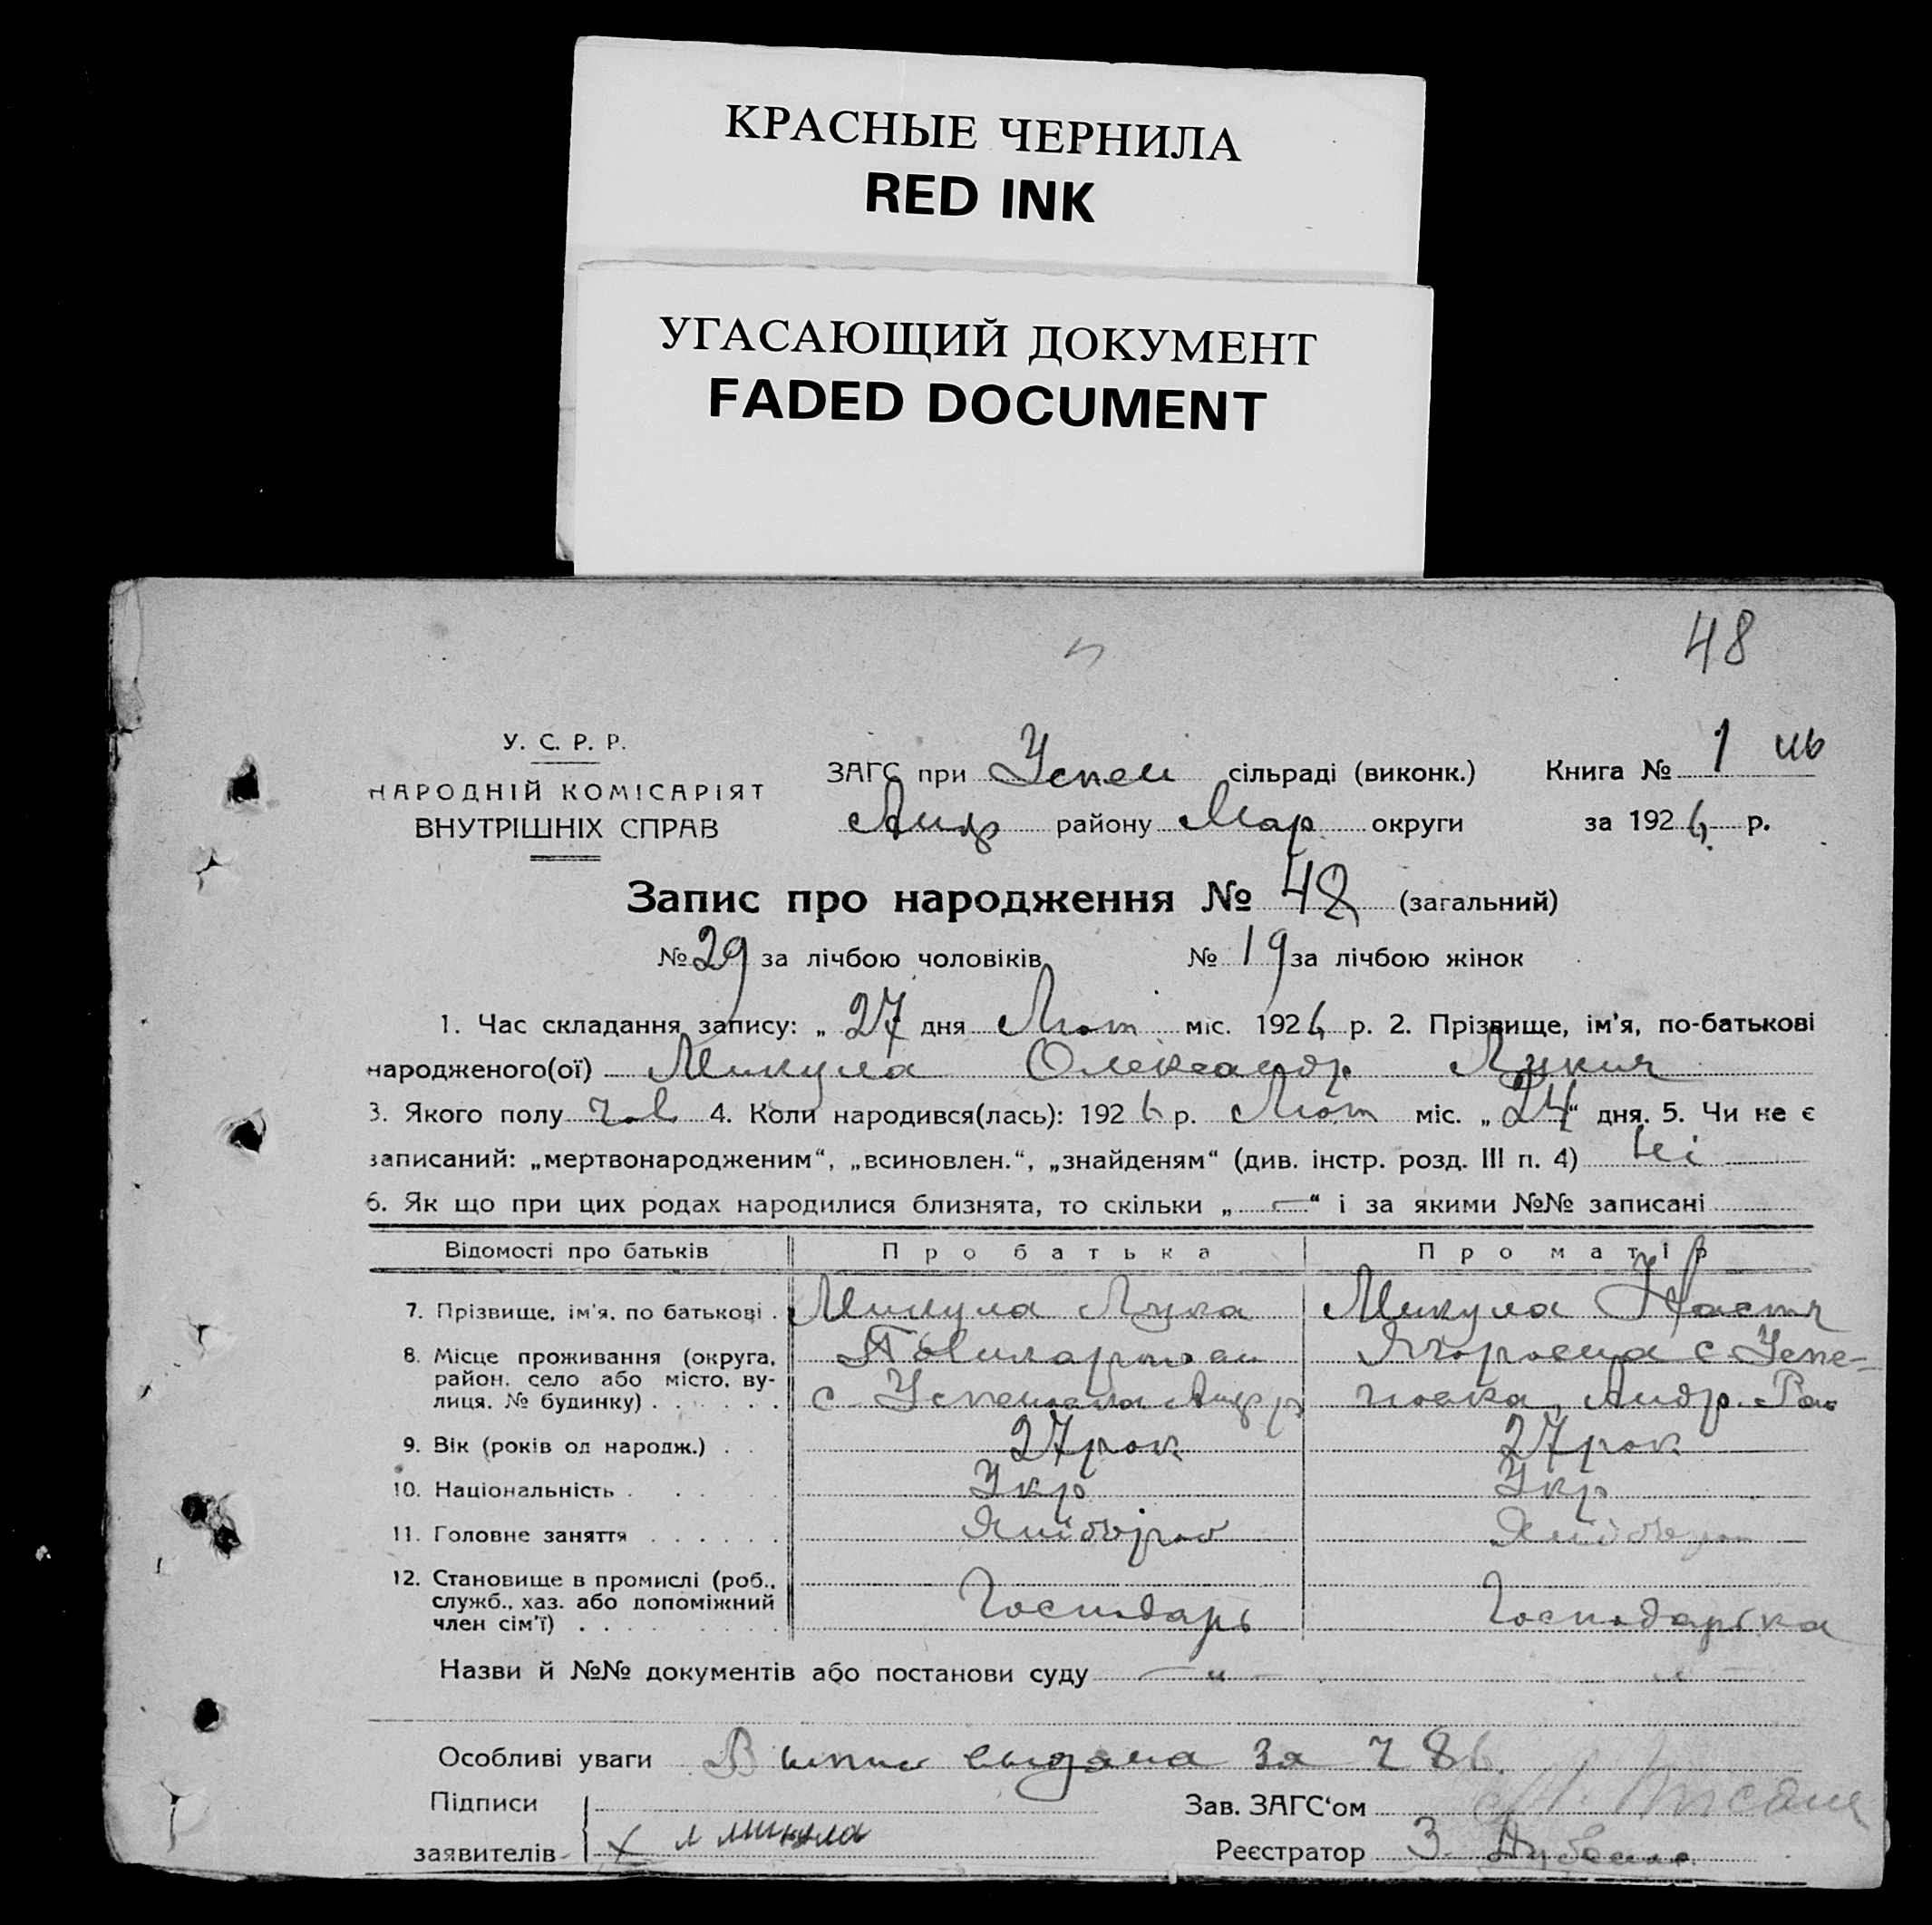 КРАСНЫЕ ЧЕРНИЛА
RED INK
УГАСАЮЩИЙ ДОКУМЕНТ
FADED DOCUMENT
48
У. С. Р. Р.
НАРОДНІЙ КОМІСАРІЯТ
ВНУТРІШНІХ СПРАВ
ЗАГС при Успен сільраді (виконк.) Книга № 1
Андр району Мар округи за 1926 р.
Запис про народження № 48 (загальний)
№ 29 за лічбою чоловіків № 19 за лічбою жінок
1. Час складання запису: „ 27 дня Лют міс. 1926 р. 2. Прізвище, ім'я, по-батькові
народженого(ої) Микула Олександр Лукич
3. Якого полу чол 4. Коли народився(лась): 1926 р. Лют міс. „24“ дня. 5. Чи не є
записаний: „мертвонародженим“, „всиновлен.“, „знайденям“ (див. інстр. розд. III п. 4) Ні
6. Як що при цих родах народилися близнята, то скільки „ — “ і за якими №№ записані
Відомості про батьків Про батька Про матір
7. Прізвище, ім'я, по батькові . Микула Лука Микула Настя
8. Місце проживання (округа,
район, село або місто, ву-
лиця, № будинку) . . . . . с Андр. Ра
9. Вік (років од народж.) . . 27 рок 27 рок
10. Національність . . . . Укр Укр
11. Головне заняття . . . . . . Хлібороб
12. Становище в промислі (роб.,
служб., хаз. або допоміжний
член сім'ї) . . . . . . . . . Господарь Господарька
Назви й №№ документів або постанови суду — „ — „ —
Особливі уваги выдана за
Підписи
заявителів Х Л Микула
Зав. ЗАГС‘ом
Реєстратор З.